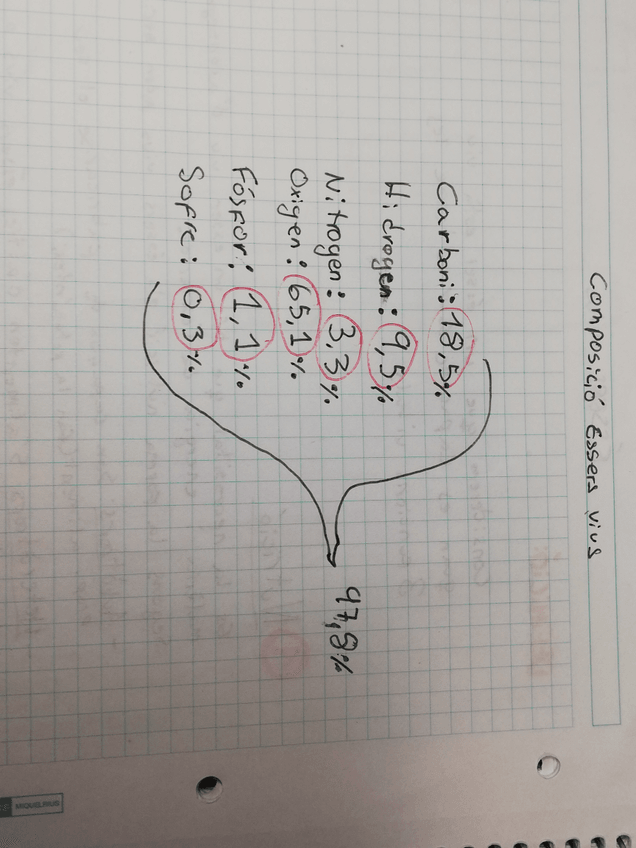 Composició Essers vius
Carboni: 18,5%
Hidrogen: 9,5%
Nitrogen: 3,3%
Oxigen: 65,1%
Fósfor: 1,1%
Sofre: 0,3%
97,8%
MIQUELRIUS